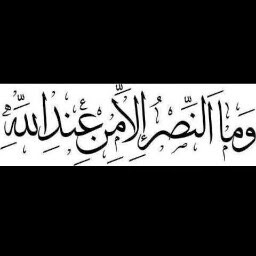 وَمَا النَّصْرُ إِلَّا مِنْ عِندِ اللَّهِ